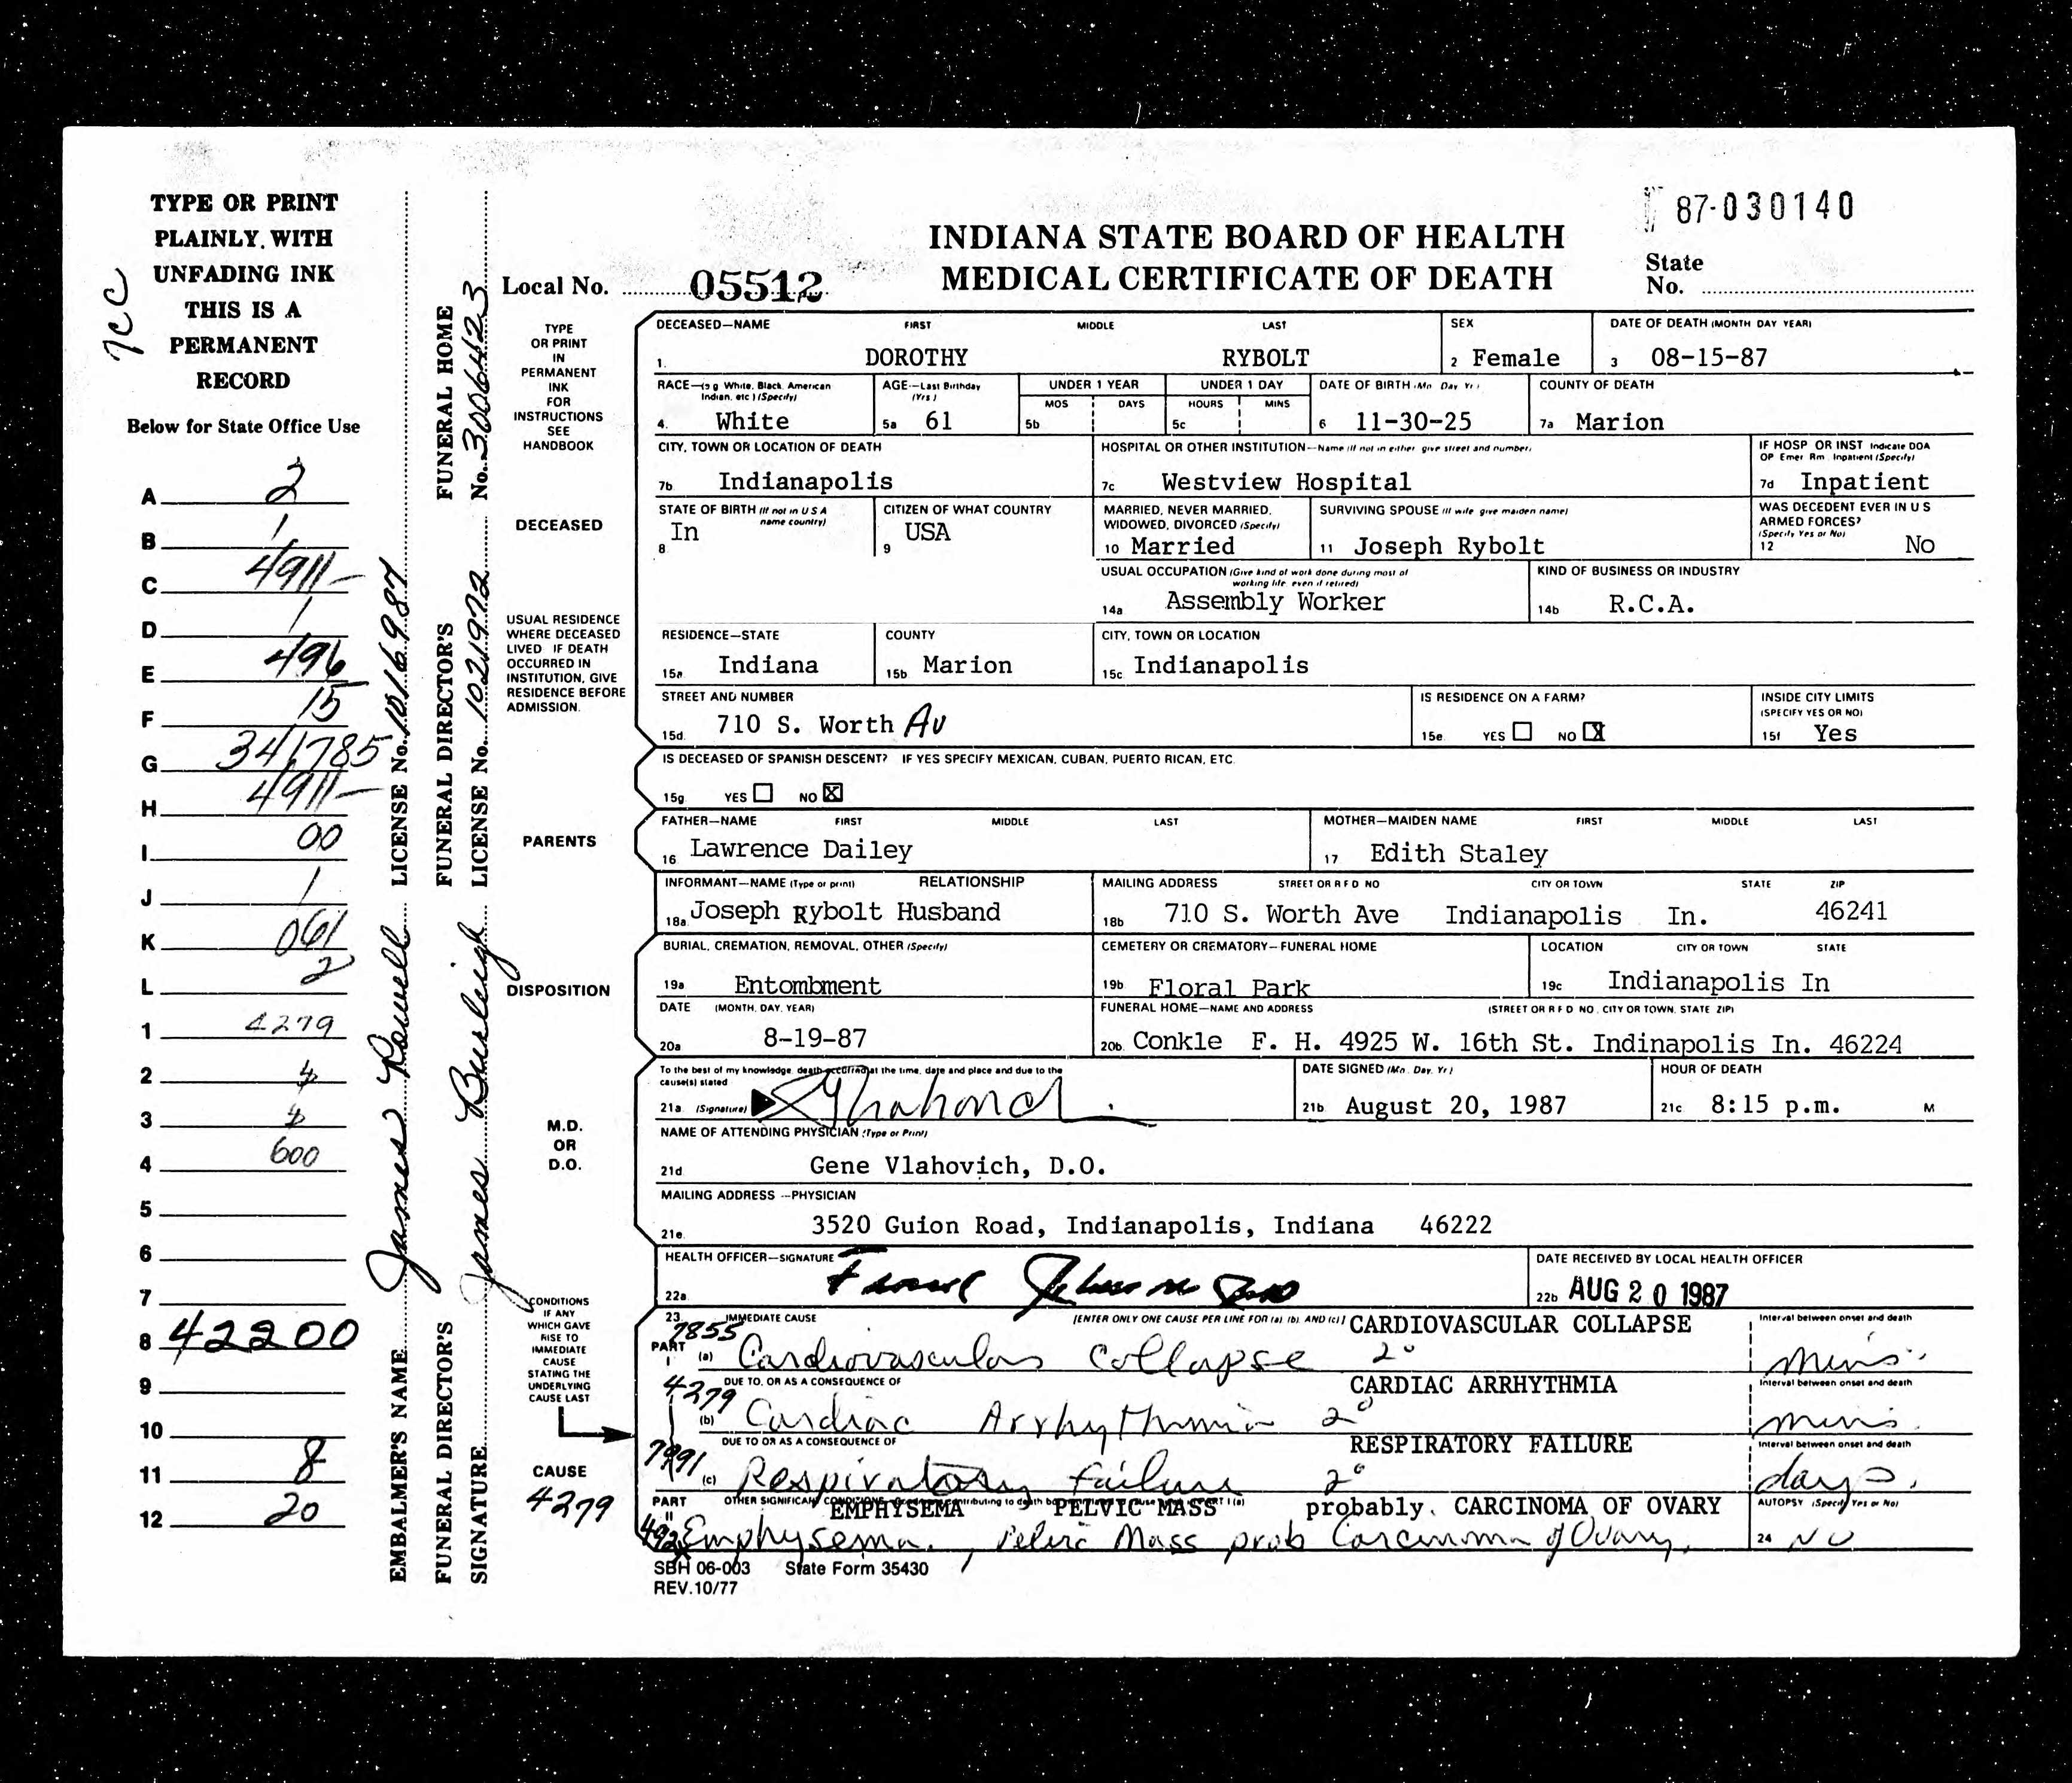 87-030140
INDIANA STATE BOARD OF HEALTH
MEDICAL CERTIFICATE OF DEATH
Local No. 05512
State
No.
TYPE OR PRINT
PLAINLY, WITH
UNFADING INK
THIS IS A
PERMANENT
RECORD
Below for State Office Use
A 2
B 1
C 4911-
D 1
E 496
F 15
G 341785
H 4911-
I 00
J 1
K 061
L 2
1 4279
2 4
3 4
4 600
5
6
7
8 42200
9
10
11 8
12 20
EMBALMER'S NAME James Powell LICENSE No. 1016987
FUNERAL DIRECTOR'S SIGNATURE James Burleigh
FUNERAL DIRECTOR'S LICENSE No. 1021972
FUNERAL HOME No. 3006423
TYPE
OR PRINT
IN
PERMANENT
INK
FOR
INSTRUCTIONS
SEE
HANDBOOK
DECEASED—NAME FIRST MIDDLE LAST SEX DATE OF DEATH (MONTH DAY YEAR)
1. DOROTHY RYBOLT 2 Female 3 08-15-87
RACE—(e g White, Black, American Indian, etc ) (Specify) AGE—Last Birthday (Yrs ) UNDER 1 YEAR UNDER 1 DAY DATE OF BIRTH (Mo Day Yr) COUNTY OF DEATH
MOS DAYS HOURS MINS
4. White 5a 61 5b 5c 6 11-30-25 7a Marion
CITY, TOWN OR LOCATION OF DEATH HOSPITAL OR OTHER INSTITUTION—Name (If not in either give street and number) IF HOSP OR INST Indicate DOA OP Emer Rm Inpatient (Specify)
7b Indianapolis 7c Westview Hospital 7d Inpatient
DECEASED
STATE OF BIRTH (If not in U S A name country) CITIZEN OF WHAT COUNTRY MARRIED, NEVER MARRIED, WIDOWED, DIVORCED (Specify) SURVIVING SPOUSE (If wife give maiden name) WAS DECEDENT EVER IN U S ARMED FORCES? (Specify Yes or No)
8 In 9 USA 10 Married 11 Joseph Rybolt 12 No
USUAL OCCUPATION (Give kind of work done during most of working life even if retired) KIND OF BUSINESS OR INDUSTRY
14a Assembly Worker 14b R.C.A.
USUAL RESIDENCE
WHERE DECEASED
LIVED IF DEATH
OCCURRED IN
INSTITUTION, GIVE
RESIDENCE BEFORE
ADMISSION.
RESIDENCE—STATE COUNTY CITY, TOWN OR LOCATION
15a Indiana 15b Marion 15c Indianapolis
STREET AND NUMBER IS RESIDENCE ON A FARM? INSIDE CITY LIMITS (SPECIFY YES OR NO)
15d. 710 S. Worth Av 15e YES NO X 15f Yes
IS DECEASED OF SPANISH DESCENT? IF YES SPECIFY MEXICAN, CUBAN, PUERTO RICAN, ETC.
15g YES NO X
PARENTS
FATHER—NAME FIRST MIDDLE LAST MOTHER—MAIDEN NAME FIRST MIDDLE LAST
16 Lawrence Dailey 17 Edith Staley
INFORMANT—NAME (Type or print) RELATIONSHIP MAILING ADDRESS STREET OR R F D NO CITY OR TOWN STATE ZIP
18a Joseph Rybolt Husband 18b 710 S. Worth Ave Indianapolis In. 46241
DISPOSITION
BURIAL, CREMATION, REMOVAL, OTHER (Specify) CEMETERY OR CREMATORY—FUNERAL HOME LOCATION CITY OR TOWN STATE
19a Entombment 19b Floral Park 19c Indianapolis In
DATE (MONTH, DAY, YEAR) FUNERAL HOME—NAME AND ADDRESS (STREET OR R F D NO, CITY OR TOWN, STATE ZIP)
20a 8-19-87 20b. Conkle F. H. 4925 W. 16th St. Indinapolis In. 46224
M.D.
OR
D.O.
To the best of my knowledge, death occurred at the time, date and place and due to the cause(s) stated DATE SIGNED (Mo. Day. Yr) HOUR OF DEATH
21a. (Signature) 21b. August 20, 1987 21c 8:15 p.m. M
NAME OF ATTENDING PHYSICIAN (Type or Print)
21d Gene Vlahovich, D.O.
MAILING ADDRESS --PHYSICIAN
21e. 3520 Guion Road, Indianapolis, Indiana 46222
HEALTH OFFICER—SIGNATURE DATE RECEIVED BY LOCAL HEALTH OFFICER
22a 22b AUG 20 1987
CONDITIONS
IF ANY
WHICH GAVE
RISE TO
IMMEDIATE
CAUSE
STATING THE
UNDERLYING
CAUSE LAST
CAUSE
4279
23. IMMEDIATE CAUSE [ENTER ONLY ONE CAUSE PER LINE FOR (a) (b) AND (c)] CARDIOVASCULAR COLLAPSE Interval between onset and death
7855
PART I (a) Cardiovascular Collapse 2° mins.
4279 DUE TO, OR AS A CONSEQUENCE OF CARDIAC ARRHYTHMIA Interval between onset and death
(b) Cardiac Arrhythmia 2° mins.
7991 DUE TO OR AS A CONSEQUENCE OF RESPIRATORY FAILURE Interval between onset and death
(c) Respiratory failure 2° days.
PART II OTHER SIGNIFICANT CONDITIONS contributing to death EMPHYSEMA PELVIC MASS probably. CARCINOMA OF OVARY AUTOPSY (Specify Yes or No)
492 Emphysema, Pelvic Mass prob Carcinoma of Ovary. 24 NO
SBH 06-003 State Form 35430
REV.10/77